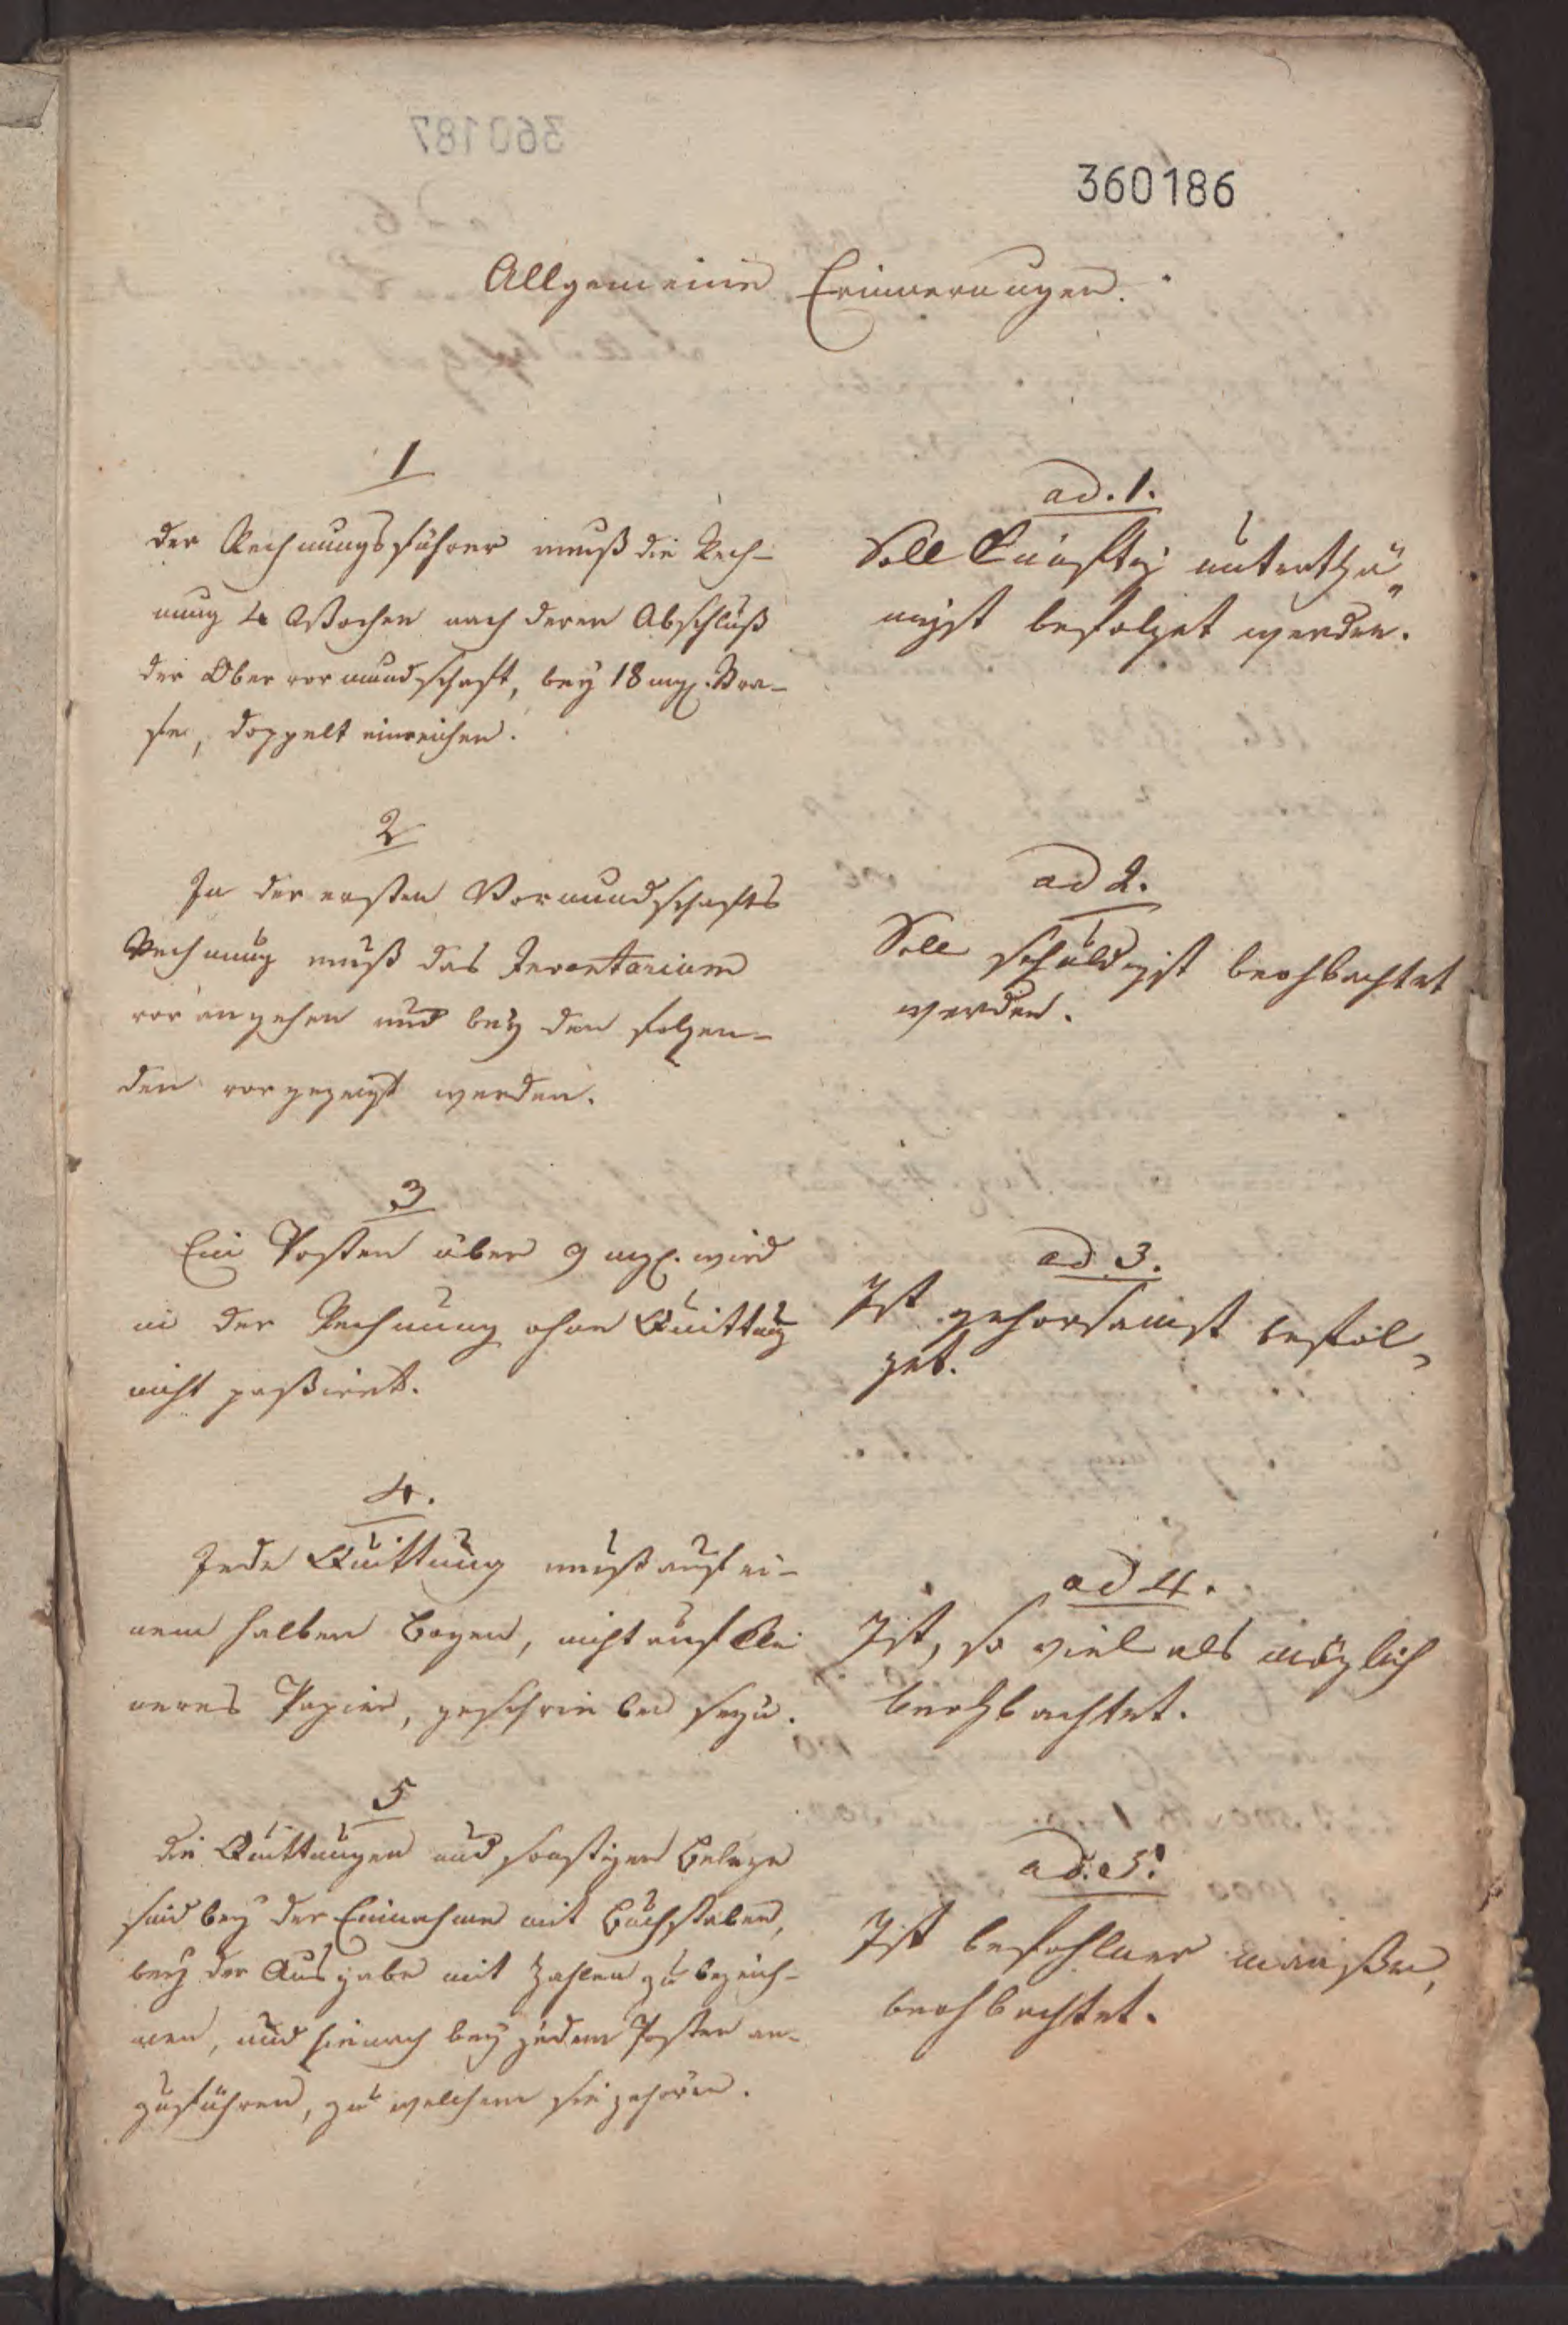 360186
Allgemeine Erinnerungen.
1
Der Rechnungsführer muß die Rech-
nung 4 Wochen nach deren Abschluß
der Obervormundschaft, bey 18 mgl. Stra-
fe, doppelt einreichen.
ad. 1.
Soll künftig unterthä„
nigst befolget werden.
2
In der ersten Vormundschafts
Rechnung muß das Inventarium
vorangehen und bey den folgen-
den vorgezeigt werden.
ad 2.
Soll schuldigst beohbachtet
werden.
3
Ein Posten über 9 mgl. wird
in der Rechnung ohne Quittung
nicht paßiret.
ad 3.
Ist gehorsamst befol„
get.
4.
Jede Quittung muß auf ei-
nem halben Bogen, nicht auf klei
neres Papier, geschrieben seyn.
ad 4.
Ist, so viel als möglich
beohbachtet.
5
Die Quittungen und sonstigen Belege
sind bey der Einnahme mit Buchstaben,
bey der Ausgabe mit Zahlen zu bezeich-
nen, und hienach bey jedem Posten an-
zuführen, zu welchem sie gehören.
ad. 5.
Ist befohlner maaßen,
beohbachtet.